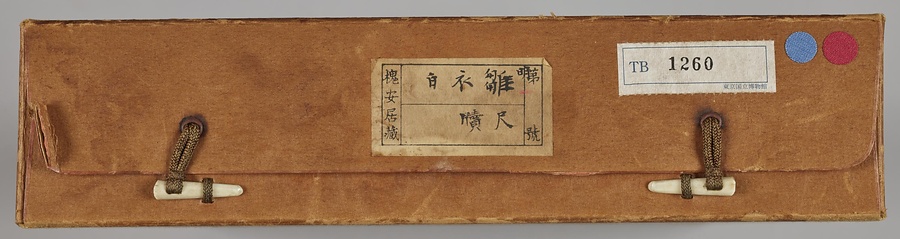 第明號
雛衣白
尺牘
槐安居藏
TB 1260
東京国立博物館